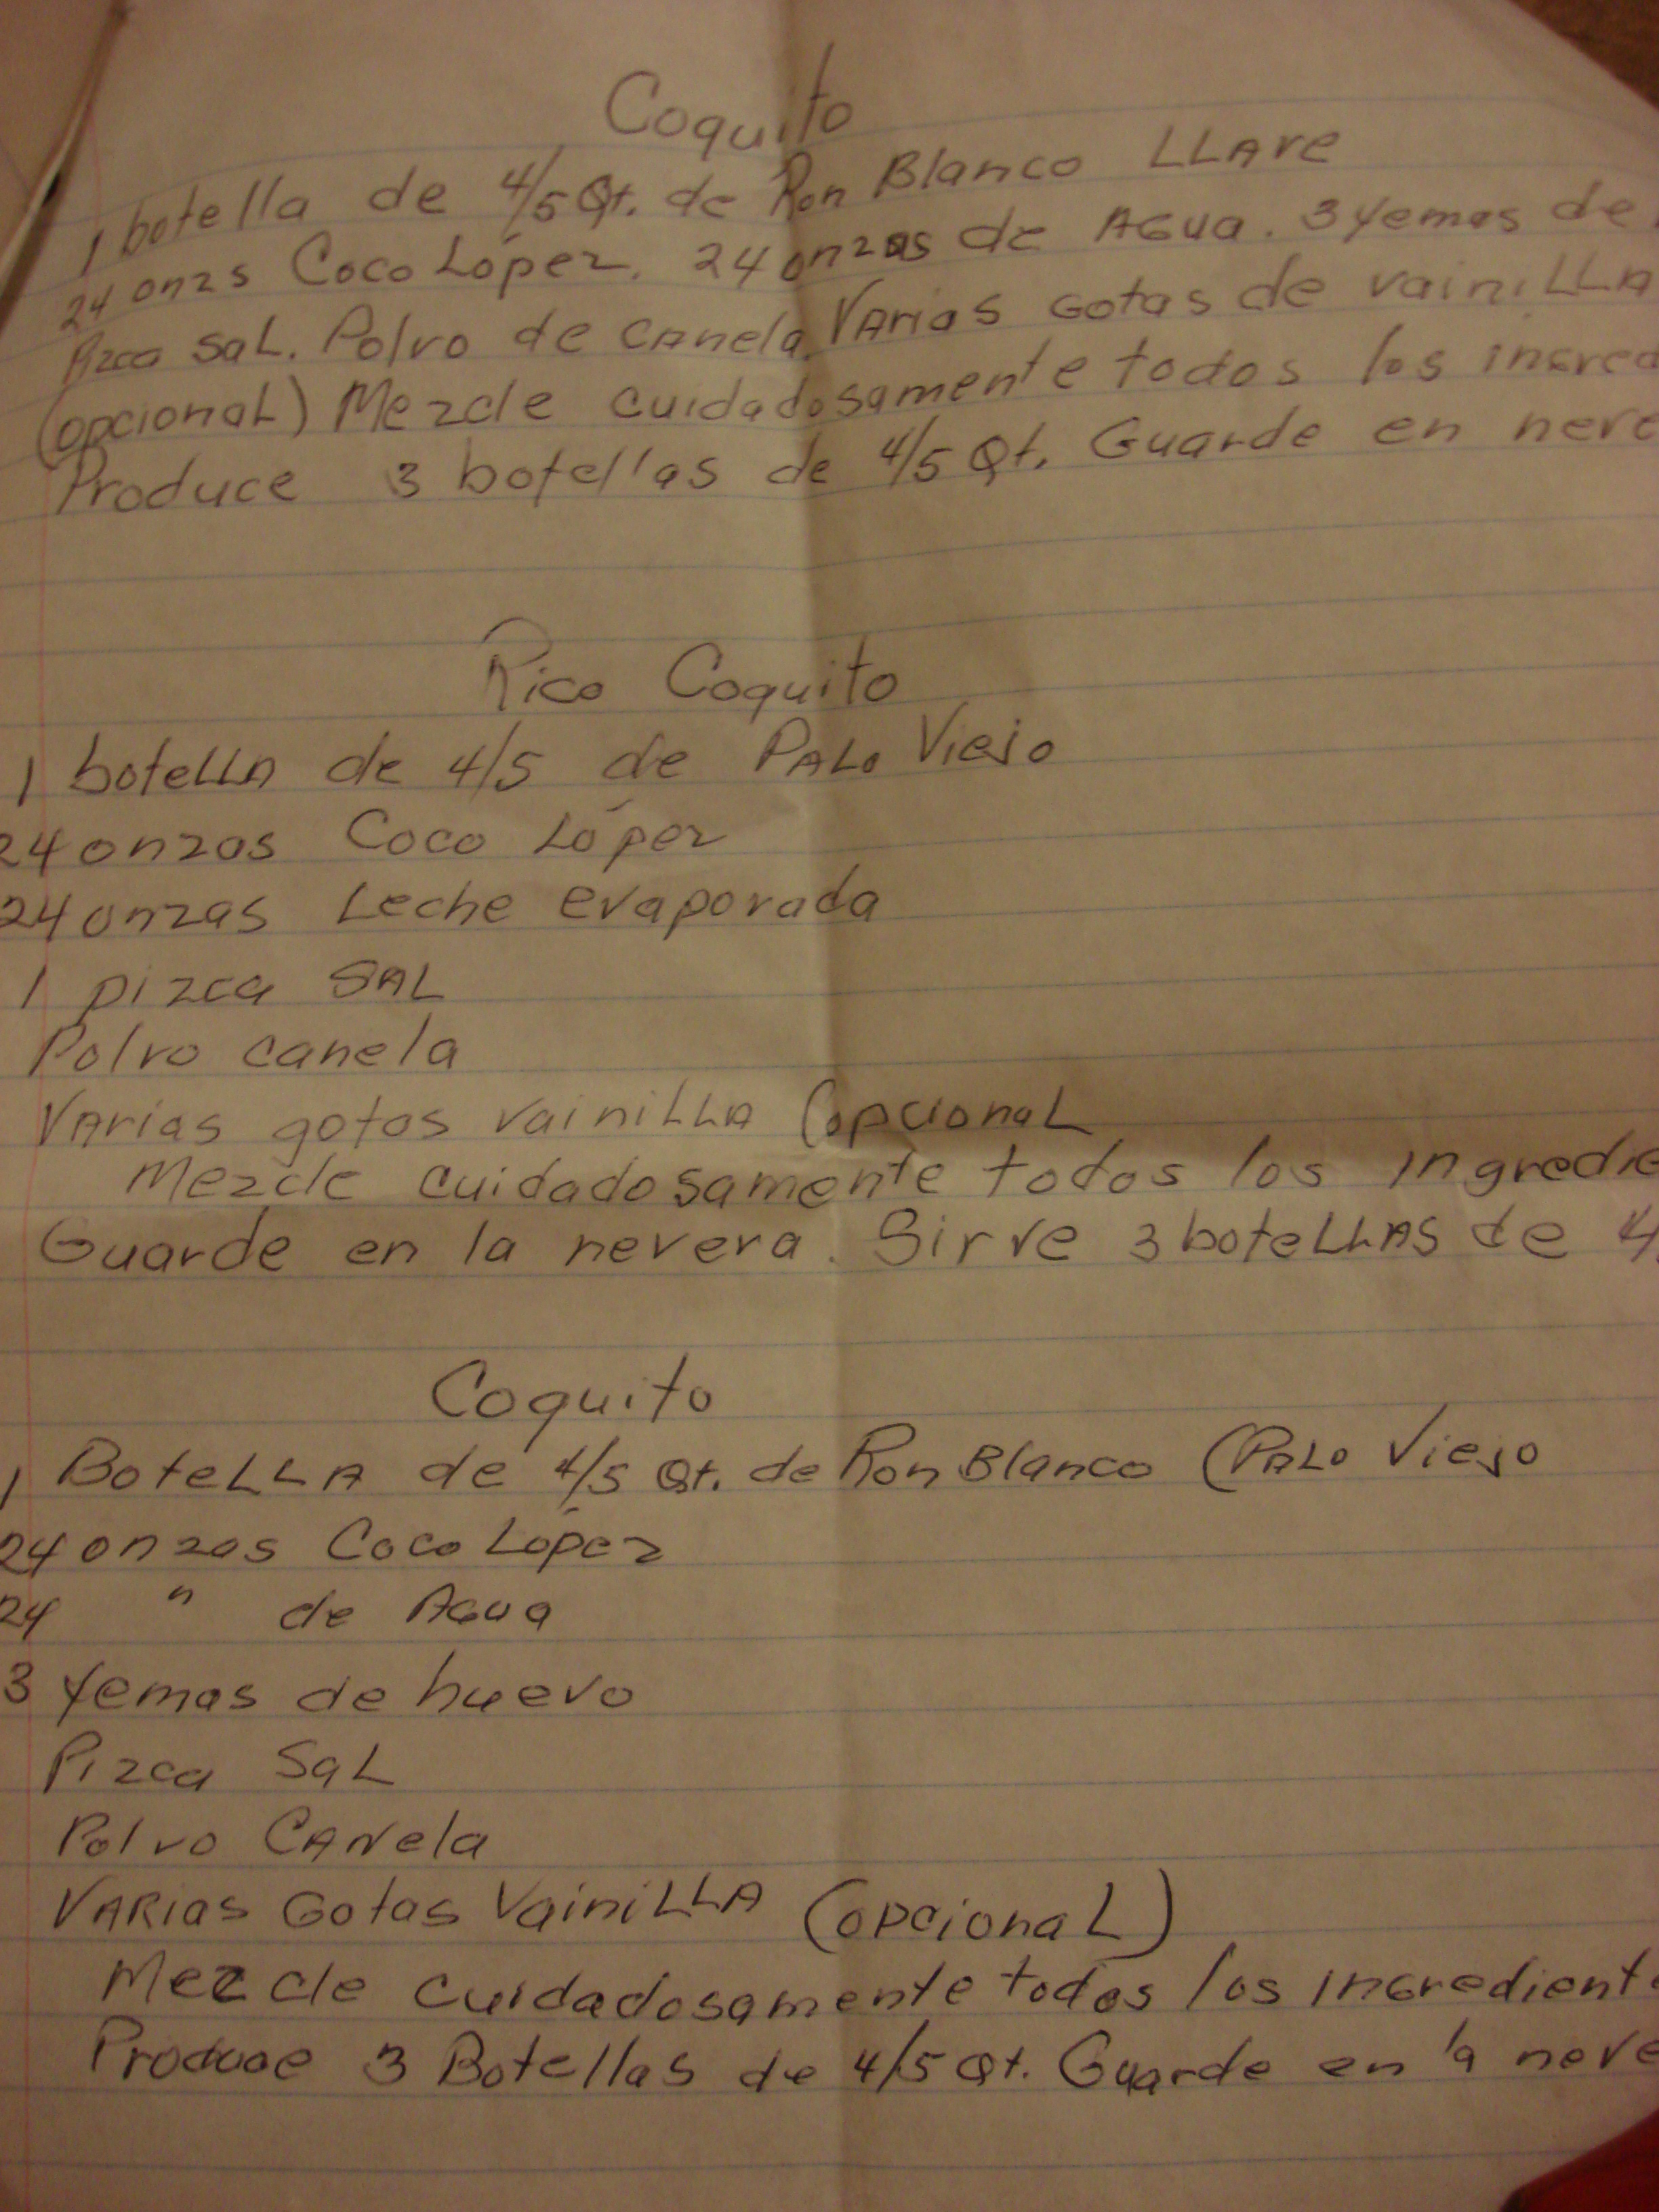 Coquito
1 botella de 4/5 Qt. de Ron Blanco LLAre
24 onzs Coco López. 24 onzas de AGua. 3 yemas de
Pizca SaL. Polvo de canela. Varias Gotas de vainiLLA
(opcionaL) Mezcle cuidadosamente todos los inGred
Produce 3 botellas de 4/5 Qt. Guarde en neve
Rico Coquito
1 boteLLA de 4/5 de PALo Viejo
24 onzas Coco López
24 onzas Leche evaporada
1 pizca SAL
Polvo canela
VArias gotas vainiLLA (opcionaL
Mezcle cuidadosamente todos los Ingredie
Guarde en la nevera. Sirve 3 boteLLAS de 4
Coquito
1 BoteLLA de 4/5 Qt. de Ron Blanco (PALo Viejo
24 onzas Coco López
24 " de AGua
3 yemas de huevo
Pizca SaL
Polvo CANela
VARias Gotas VainiLLA (opcionaL)
Mezcle cuidadosamente todos los InGredient
Produce 3 Botellas de 4/5 Qt. Guarde en la neve